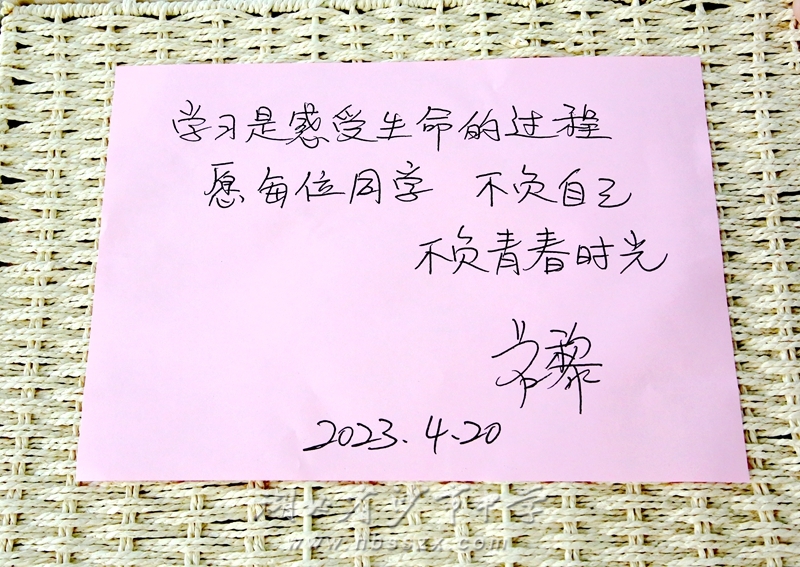 学习是感受生命的过程
愿每位同学 不负自己
不负青春时光
常黎
2023.4.20
湖北省沙市中学
www.hbsszx.com